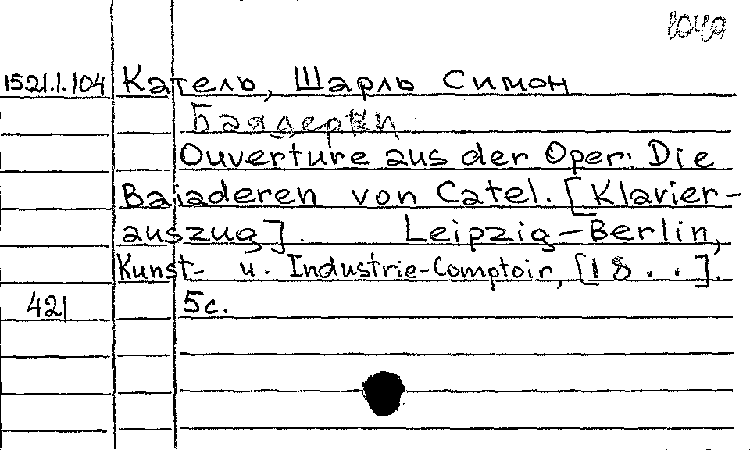 1521.1.104 Катель, Шарль Симон
Баядерки
Ouverture aus der Oper: Die
Baiaderen von Catel. [Klavier-
auszug] Leipzig-Berlin,
Kunst- u. Industrie-Comptoir, [18 . . ].
421 5c.